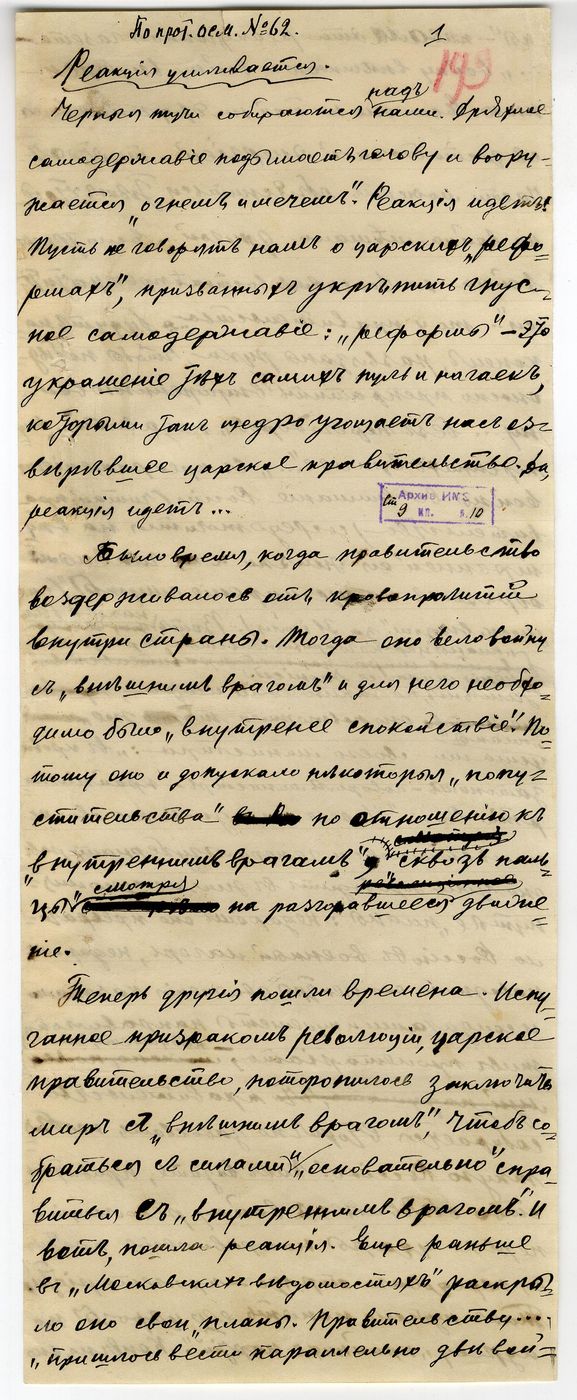 По прот. осм. № 62.
1
193
Реакція усиливается.
надъ
Черныя тучи собираются нами. Дряхлое
самодержавіе подымаетъ голову и воору-
жается „огнемъ и мечемъ". Реакція идетъ!
Пусть не говорятъ намъ о царскихъ „рефо-
рмахъ", призванныхъ укрѣпить гнус-
ное самодержавіе: „реформы" – это
украшеніе тѣхъ самихъ пуль и нагаекъ,
которыми такъ щедро угощаетъ насъ оз-
вѣрѣвшее царское правительство. Да,
реакція идетъ...
Архив ИМЭ
ст 9 ИП. в. 10
Было время, когда правительство
воздерживалось отъ кровопролитій
внутри страны. Тогда оно вело войну
съ „внѣшнимъ врагомъ" и для него необхо-
димо было „внутренее спокойствіе". По-
тому оно и допускало нѣкоторыя „попу-
стительства" по отношенію къ
„внутреннимъ врагамъ" „сквозь паль-
смотря
цы" на разгоравшееся движе-
ніе.
Теперь другія пошли времена. Испу-
ганное призракомъ революціи, царское
правительство, поторопилось заключить
миръ съ „внѣшнимъ врагомъ", чтобъ со-
браться съ силами и „основательно" спра-
виться съ „внутреннимъ врагомъ". И
вотъ, пошла реакція. Еще раньше
въ „Московскихъ вѣдомостяхъ" раскры-
ло оно свои „планы. Правительству....
„пришлось вести параллельно двѣ вой-